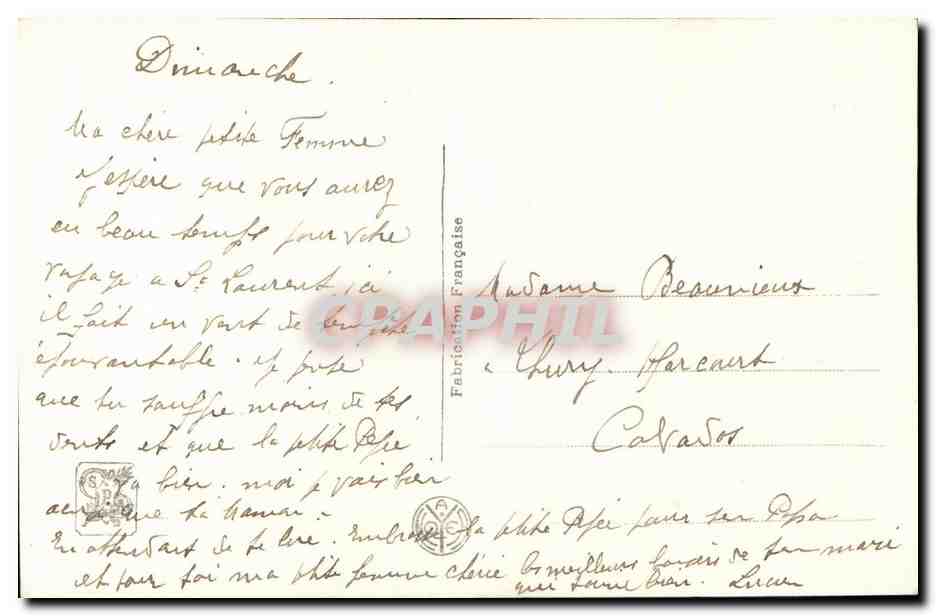 Dimanche.
Ma chère petite Femme
J'espère que vous aurez
eu beau temps pour votre
voyage a St Laurent ici
il fait un vent de tempête
épouvantable. et je pense
que tu souffre moins de tes
dents et que la petite
va bien. moi je vais bien
ainsi que ta Maman.
En attendant de te lire. Embrasse la petite pour son Papa
et pour toi ma ptite femme chérie les meilleurs baisers de ton mari
qui t'aime bien. Lucien
Fabrication Française
CPAPHIL
Madame Beaunieux
a Thury-Harcourt
Calvados